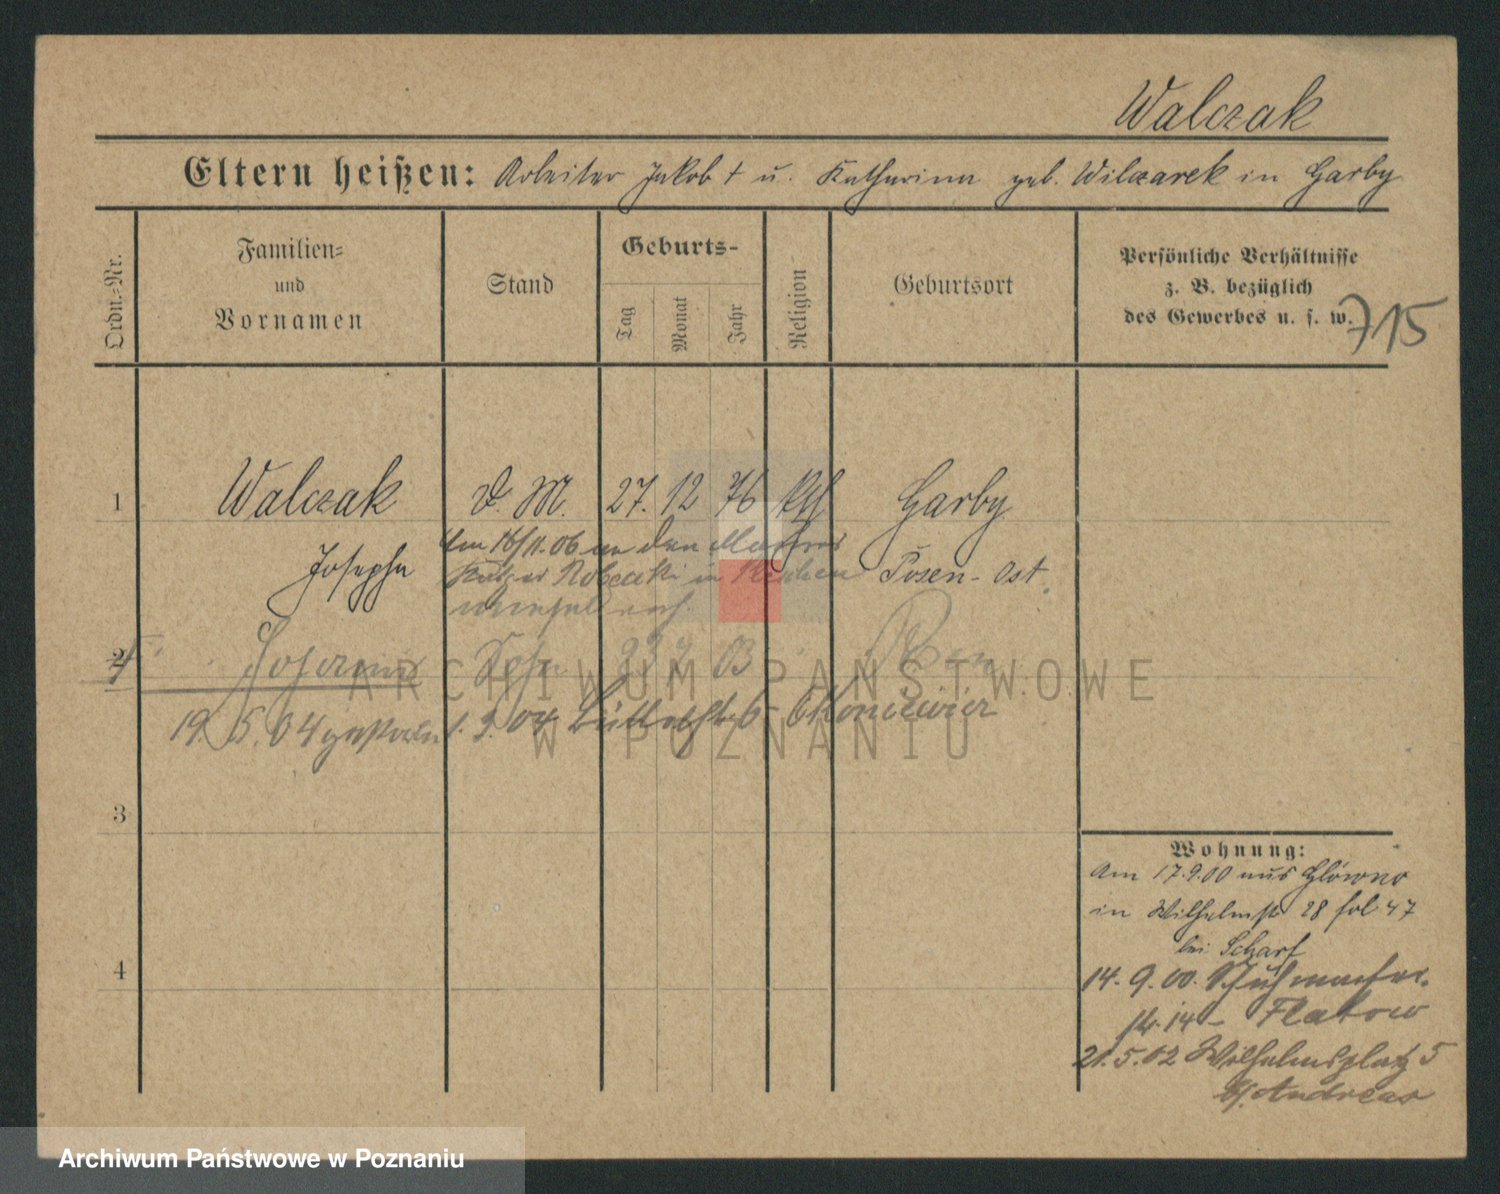 Walczak
Eltern heißen: Arbeiter Jakob † u. Katharina geb. Wilczarek in Garby
Ordn.-Nr.
Familien- und Vornamen
Stand
Geburts-
Tag
Monat
Jahr
Religion
Geburtsort
Persönliche Verhältnisse
z. B. bezüglich
des Gewerbes u. s. w.
715
1 Walczak d. M. 27. 12 76 kth Garby
Josepha Posen-Ost
Am 16/11.06 an den
in
2 Johann Sohn 23 7 03 Posen
19. 5. 04 gestorben 1. 9. 04 6
3
4
Wohnung:
Am 17.9.00 aus Glówno
in Wilhelmstr 28 fol 47
bei Scharf
14. 9. 00. Schuhmacher
str. 14 - Flatow
21. 5. 02 Wilhelmsplatz 5
b/ Andreas
ARCHIWUM PAŃSTWOWE
W POZNANIU
Archiwum Państwowe w Poznaniu